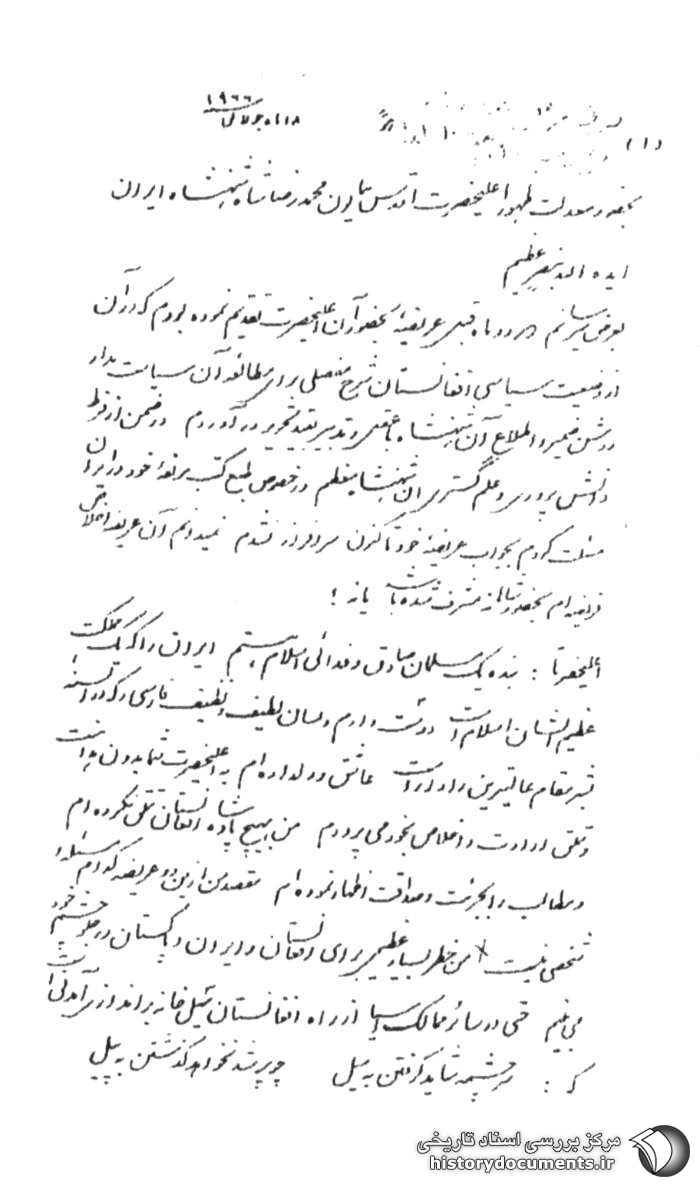 ۱۹۶۶
۱۸ ماه جولائی
(۱)
بحضور معدلت ظهور اعلیحضرت اقدس همایون محمد رضا شاه شهنشاه ایران
ایده الله بنصره عظیم
بعرض میرسانم در دو ماه قبل عریضهٔ بحضور آن اعلیحضرت تقدیم نموده بودم که در آن
از وضعیت سیاسی افغانستان شرح مفصلی برای مطالعه آن سیاست مدار
روشن ضمیر و اطلاع آن شهنشاه با عقل و تدبیر بقید تحریر در آوردم در ضمن از فرط
دانش پروری و علم گستری آن شهنشاه معظم در خصوص طبع کتب مؤلفهٔ خود در ایران
مسئلت کردم بجواب عریضهٔ خود تا کنون سرافراز نشدم نمیدانم آن عریضه اخلاص
فریضه ام بحضور شاهانه مشرف شده باشد یا نه !
اعلیحضرتا : بنده یک مسلمان صادق و فدائی اسلام هستم ایران را که یک مملکت
عظیم الشان اسلام است دوست دارم و لسان لطیف و نظیف فارسی را که در السنهٔ
مقام عالیترین را دارا است عاشق و دلداده ام به اعلیحضرت شما بدون
و تملق ارادت و اخلاص بخود می پرورم من به هیچ پادشاه افغانستان تملق نکرده ام
و مطالب را بجرئت و صداقت اظهار نموده ام مقصد من ازین دو عریضه کدام مسئله
شخصی نیست من خطر بسیار عظیم برای افغانستان و ایران و پاکستان در جلو چشم خود
می بینم حتی در سائر ممالک آسیا از راه افغانستان سیل خانه برانداز سرآمدنی است
که : سر چشمه شاید گرفتن به بیل چو پر شد نخواهد گذشتن به پیل
مرکز بررسی اسناد تاریخی
historydocuments.ir